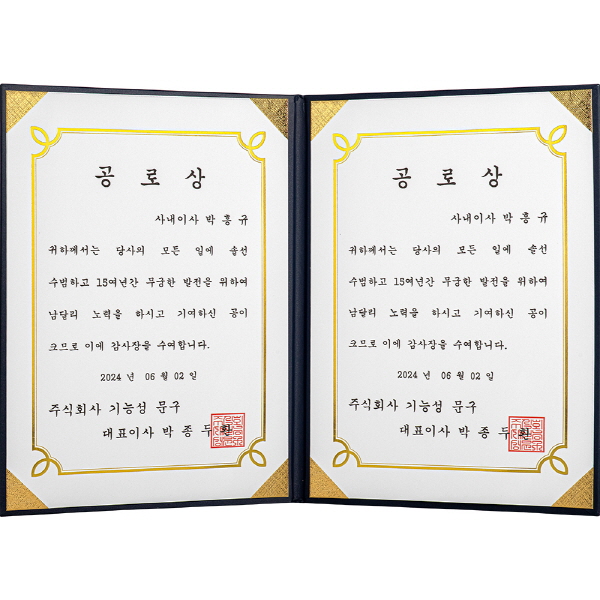 공로상
사내이사 박흥규
귀하께서는 당사의 모든 일에 솔선
수범하고 15여년간 무궁한 발전을 위하여
남달리 노력을 하시고 기여하신 공이
크므로 이에 감사장을 수여합니다.
2024 년 06 월 02 일
주식회사 기능성 문구
대표이사 박 종 두 환
공로상
사내이사 박흥규
귀하께서는 당사의 모든 일에 솔선
수범하고 15여년간 무궁한 발전을 위하여
남달리 노력을 하시고 기여하신 공이
크므로 이에 감사장을 수여합니다.
2024 년 06 월 02 일
주식회사 기능성 문구
대표이사 박 종 두 환